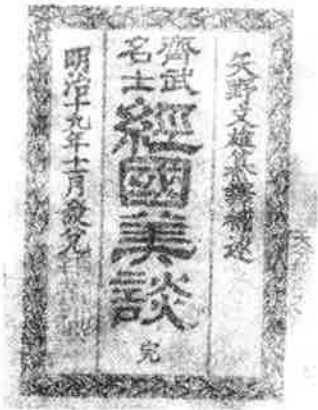 矢野文雄纂譯補述
齊武
名士
經國美談
完
明治十九年十一月發兌